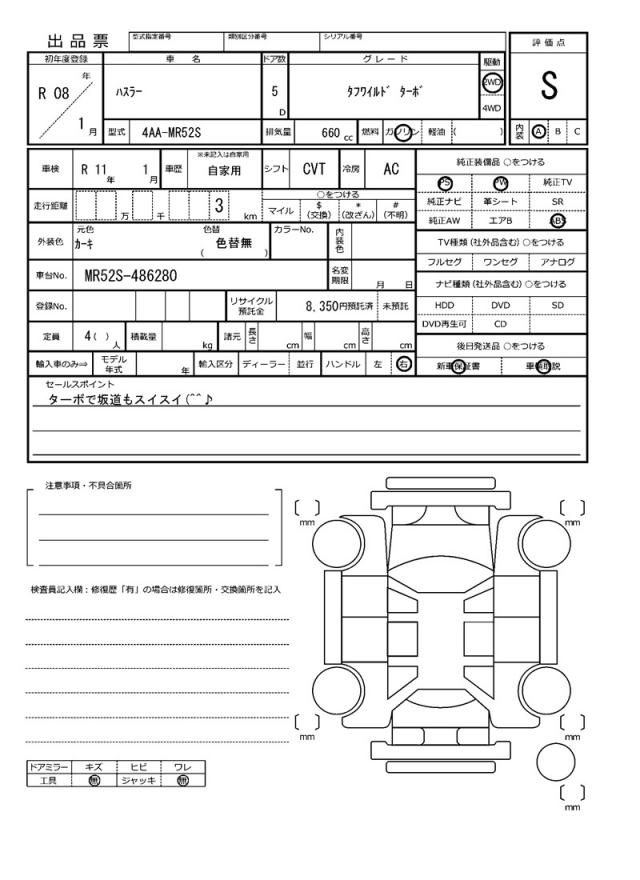 出品票 型式指定番号 類別区分番号 シリアル番号 評価点
初年度登録 車 名 ドア数 グレード 駆動
R 08 年 1 月 ハスラー 5 D タフワイルド ターボ 2WD 4WD S
型式 4AA-MR52S 排気量 660 cc 燃料 ガソリン 軽油 ( ) 内装 A B C
車検 R 11 年 1 月 車歴 ※未記入は自家用 自家用 シフト CVT 冷房 AC 純正装備品 ○をつける
PS PW 純正TV
走行距離 万 千 3 km ○をつける
マイル $(交換) *(改ざん) #(不明)
純正ナビ 革シート SR
純正AW エアB ABS
外装色 元色 カーキ 色替 色替無 ( ) カラーNo. 内装色
TV種類 (社外品含む) ○をつける
フルセグ ワンセグ アナログ
車台No. MR52S-486280 名変期限 月 日
ナビ種類 (社外品含む) ○をつける
登録No. リサイクル預託金 8,350円預託済 未預託
HDD DVD SD
DVD再生可 CD
定員 4( ) 人 積載量 kg 諸元 長さ cm 幅 cm 高さ cm
後日発送品 ○をつける
輸入車のみ⇒ モデル年式 年 輸入区分 ディーラー 並行 ハンドル 左 右
新車保証書 車輌取説
セールスポイント
ターボで坂道もスイスイ(^^♪
注意事項・不具合箇所
mm mm
検査員記入欄：修復歴「有」の場合は修復箇所・交換箇所を記入
mm mm
ドアミラー キズ ヒビ ワレ
工具 無 ジャッキ 無
mm